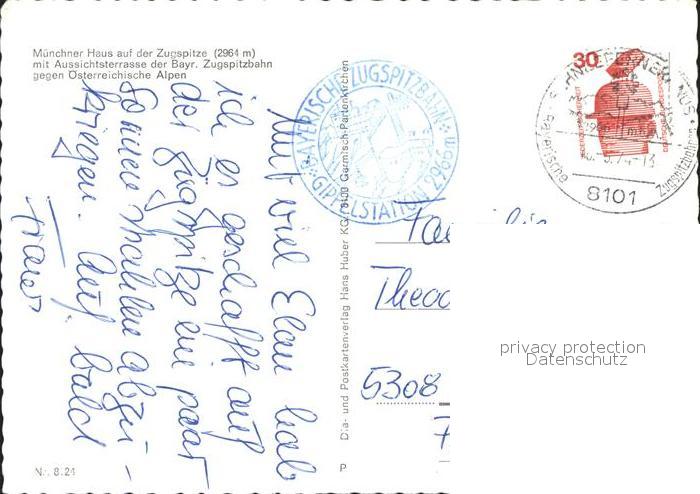 Münchner Haus auf der Zugspitze (2964 m)
mit Aussichtsterrasse der Bayr. Zugspitzbahn
gegen Österreichische Alpen
Mit viel Elan hab
ich es geschafft auf
der Zugspitze ein paar
Sonnenstrahlen abzu-
kriegen. Auf bald
BAYERISCHE ZUGSPITZBAHN
GIPFELSTATION 2966 m
Dia- und Postkartenverlag Hans Huber KG, 8100 Garmisch-Partenkirchen
30
DEUTSCHE BUNDESPOST
Bayerische
Zugspitzbahn
8101
Familie
Theod
5308
privacy protection
Datenschutz
Nr. 8.24
P